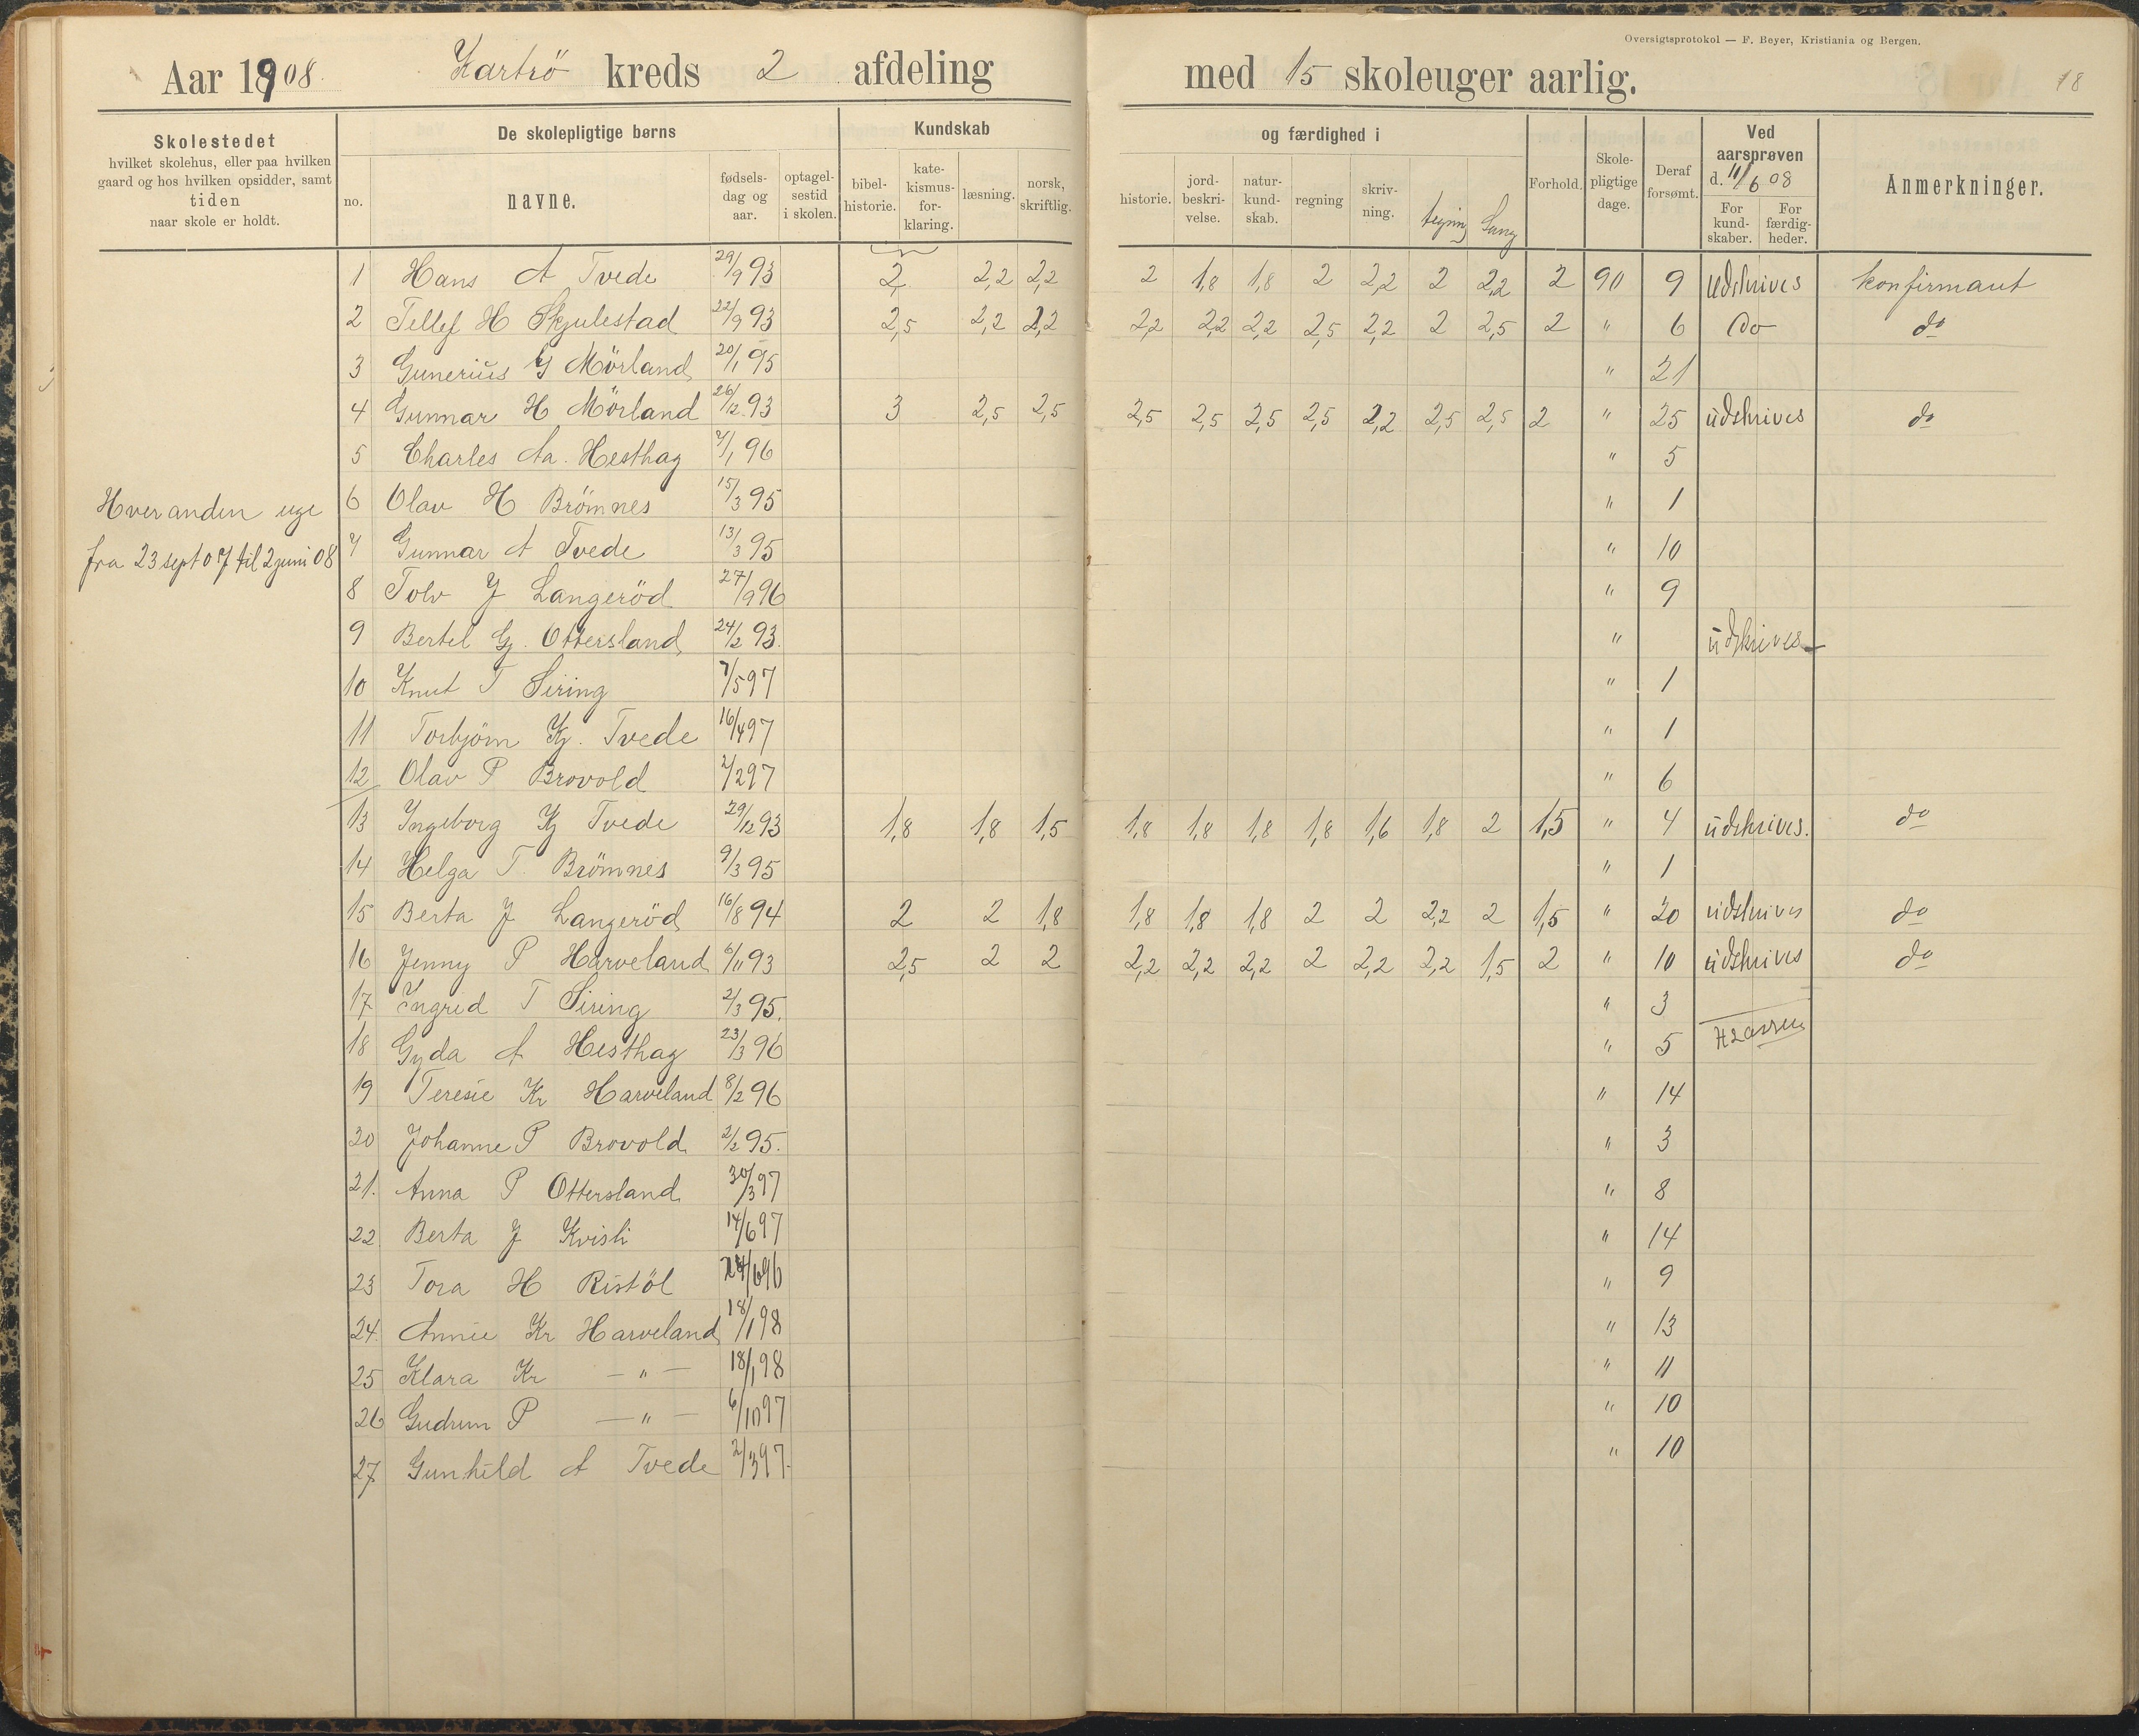 Oversigtsprotokol — F. Beyer, Kristiania og Bergen.
Aar 1908. Kartrö kreds 2 afdeling med 15 skoleuger aarlig. 18
Skolestedet
hvilket skolehus, eller paa hvilken
gaard og hos hvilken opsidder, samt
tiden
naar skole er holdt.
De skolepligtige børns
no. navne. fødsels-dag og aar. optagel-sestid i skolen.
Kundskab og færdighed i
bibel-historie. kate-kismus-for-klaring. læsning. norsk, skriftlig. historie. jord-beskri-velse. natur-kund-skab. regning skriv-ning. tegning Sang
Forhold. Skole-pligtige dage. Deraf forsømt.
Ved aarsprøven d. 11/6 08
For kund-skaber. For færdig-heder.
Anmerkninger.
Hver anden uge
fra 23 sept 07 til 2 juni 08
1 Hans A Tvede 29/9 93 2 2,2 2,2 2 1,8 1,8 2 2,2 2 2,2 2 90 9 udskrives konfirmant
2 Tellef H Skjulestad 22/9 93 2,5 2,2 2,2 2,2 2,2 2,2 2,5 2,2 2 2,5 2 " 6 do do
3 Gunerius G Mörland 20/1 95 " 21
4 Gunnar H Mörland 26/12 93 3 2,5 2,5 2,5 2,5 2,5 2,5 2,2 2,5 2,5 2 " 25 udskrives do
5 Charles Aa. Hesthag 7/1 96 " 5
6 Olav H Brömnes 15/3 95 " 1
7 Gunnar A Tvede 13/3 95 " 10
8 Tolv J Langeröd 27/9 96 " 9
9 Bertel Gj. Ottersland 24/2 93. " udskrives
10 Knut T Siring 7/5 97 " 1
11 Torbjörn Kj. Tvede 16/4 97 " 1
12 Olav P Brovold 2/2 97 " 6
13 Ingeborg Kj Tvede 29/12 93 1,8 1,8 1,5 1,8 1,8 1,8 1,8 1,6 1,8 2 1,5 " 4 udskrives. do
14 Helga T. Brömnes 9/3 95 " 1
15 Berta J Langeröd 16/8 94 2 2 1,8 1,8 1,8 1,8 2 2 2,2 2 1,5 " 20 udskrives do
16 Jenny P Harveland 6/11 93 2,5 2 2 2,2 2,2 2,2 2 2,2 2,2 1,5 2 " 10 udskrives do
17 Ingrid T Siring 2/3 95. " 3
18 Gyda A Hesthag 23/3 96 " 5
19 Teresie Kr Harveland 8/2 96 " 14
20 Johanne P Brovold 2/2 95. " 3
21. Anna P Ottersland 30/3 97 " 8
22 Berta J Kvisli 14/6 97 " 14
23 Tora H Ristöl 24/6 96 " 9
24. Annie Kr Harveland 18/1 98 " 13
25 Klara Kr — " — 18/1 98 " 11
26 Gudrun P — " — 6/10 97 " 10
27 Gunhild A Tvede 2/3 97. " 10